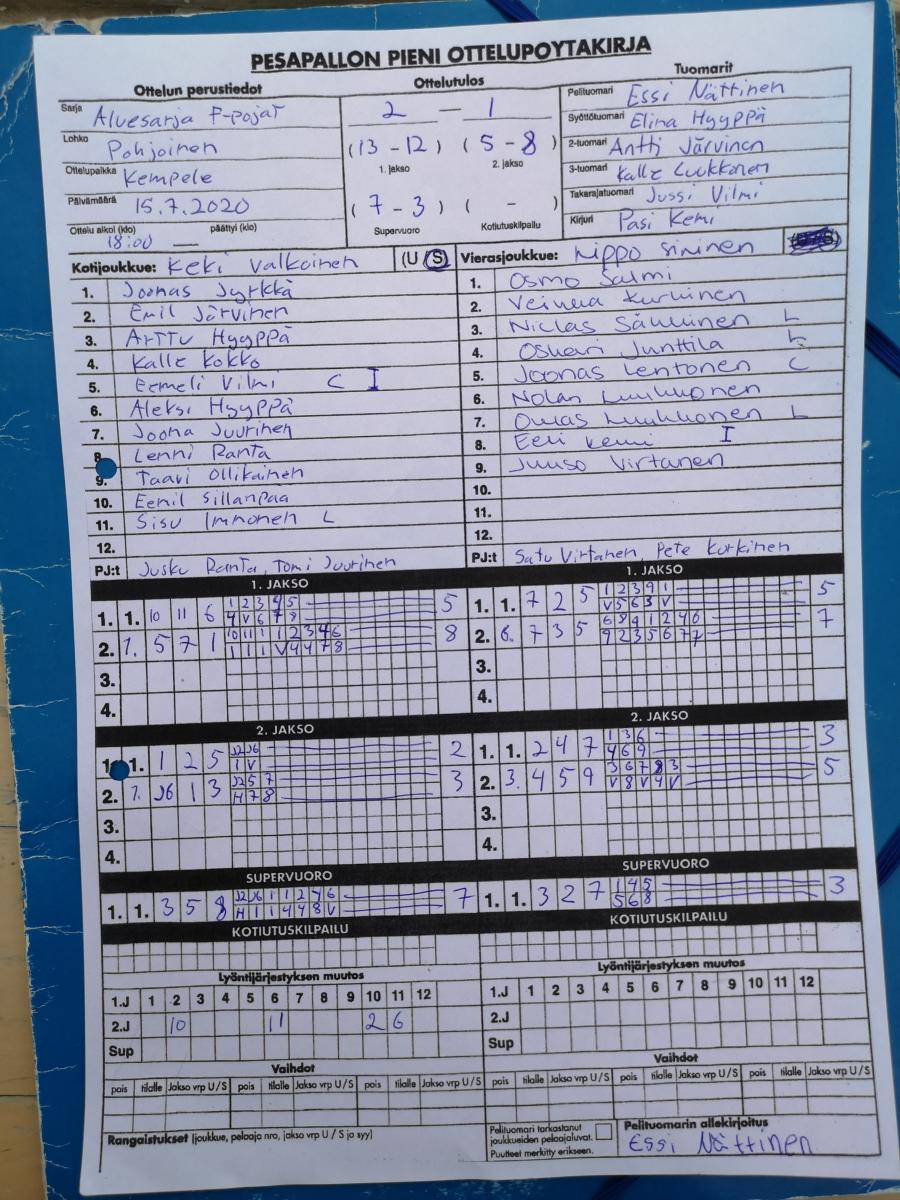 PESAPALLON PIENI OTTELUPOYTAKIRJA
Ottelun perustiedot
Sarja Aluesarja F-pojat
Lohko Pohjoinen
Ottelupaikka Kempele
Päivämäärä 15.7.2020
Ottelu alkoi (klo) 18:00 — päättyi (klo)
Ottelutulos
2 — 1
(13 - 12) (5 - 8)
1. jakso 2. jakso
(7 - 3) ( - )
Supervuoro Kotiutuskilpailu
Tuomarit
Pelituomari Essi Nättinen
Syöttötuomari Elina Hyyppä
2-tuomari Antti Järvinen
3-tuomari Kalle Luukkonen
Takarajatuomari Jussi Vilmi
Kirjuri Pasi Kemi
Kotijoukkue: Keki Valkoinen (U S)
1. Joonas Jyrkkä
2. Emil Järvinen
3. Arttu Hyyppä
4. Kalle Kokko
5. Eemeli Vilmi C I
6. Aleksi Hyyppä
7. Joona Juurinen
8. Lenni Ranta
9. Taavi Ollikainen
10. Eemil Sillanpää
11. Sisu Immonen L
12.
PJ:t Jusku Ranta, Tomi Juurinen
Vierasjoukkue: Lippo Sininen
1. Osmo Salmi
2. Kurkinen
3. Niclas L
4. Oskari Junttila L
5. Joonas Lentonen C
6. Nolan Luukkonen
7. Luukkonen L
8. Eeri Kemi I
9. Juuso Virtanen
10.
11.
12.
PJ:t Satu Virtanen, Pete Kurkinen
1. JAKSO
1. 1. 10 11 6 5
1 2 3 4 5
4 V 6 7 8
2. 7. 5 7 1 8
10 11 1 1 2 3 4 6
1 1 1 V 4 4 7 8
3.
4.
1. JAKSO
1. 1. 7 2 5 5
1 2 3 9 1
V 5 6 3 V
2. 6. 7 3 5 7
6 8 9 1 2 4 6
9 2 3 5 6 7 7
3.
4.
2. JAKSO
1. 1. 1 2 5 2
J2 J6
1 V
2. 7. J6 1 3 3
J2 5 7
H 7 8
3.
4.
2. JAKSO
1. 1. 2 4 7 3
1 3 6
4 6 9
2. 3. 4 5 9 5
3 6 7 8 3
V 8 V 4 V
3.
4.
SUPERVUORO
1. 1. 3 5 8 7
J2 J6 1 1 2 4 6
H 1 1 4 4 8 V
SUPERVUORO
1. 1. 3 2 7 3
1 4 5
5 6 8
KOTIUTUSKILPAILU
KOTIUTUSKILPAILU
Lyöntijärjestyksen muutos
1.J 1 2 3 4 5 6 7 8 9 10 11 12
2.J 10 11 2 6
Sup
Lyöntijärjestyksen muutos
1.J 1 2 3 4 5 6 7 8 9 10 11 12
2.J
Sup
Vaihdot
pois tilalle Jakso vrp U/S pois tilalle Jakso vrp U/S pois tilalle Jakso vrp U/S
Vaihdot
pois tilalle Jakso vrp U/S pois tilalle Jakso vrp U/S pois tilalle Jakso vrp U/S
Rangaistukset (joukkue, pelaaja nro, jakso vrp U / S ja syy)
Pelituomari tarkastanut
joukkueiden pelaajaluvat.
Puutteet merkitty erikseen.
Pelituomarin allekirjoitus
Essi Nättinen